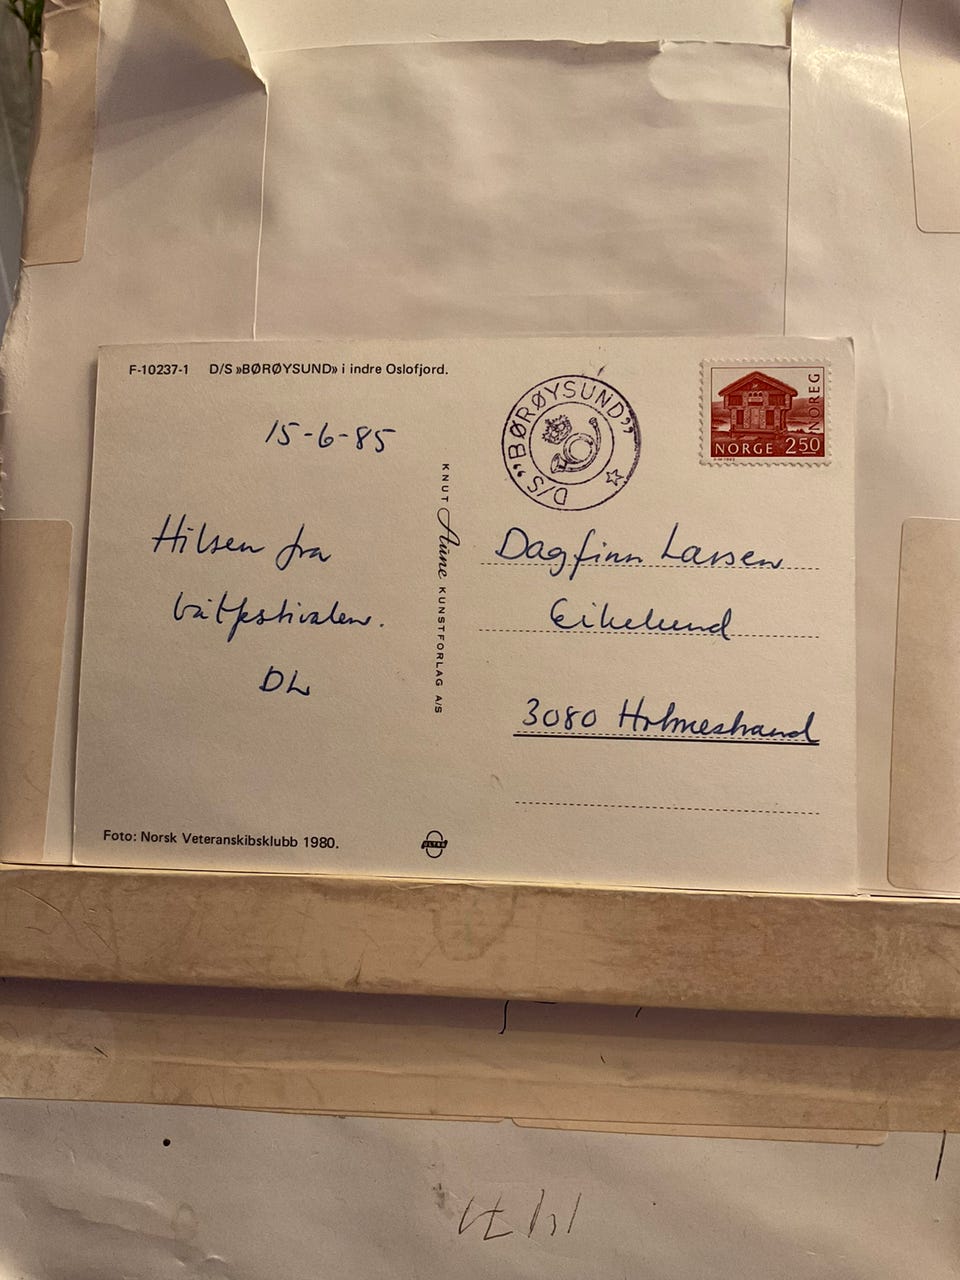 F-10237-1 D/S »BØRØYSUND» i indre Oslofjord.
15-6-85
Hilsen fra
båtfestivalen.
DL
Foto: Norsk Veteranskibsklubb 1980.
KNUT Aune KUNSTFORLAG A/S
ULTRA
D/S "BØRØYSUND"
NORGE 250
NOREG
Dagfinn Larsen
Eikelund
3080 Holmestrand